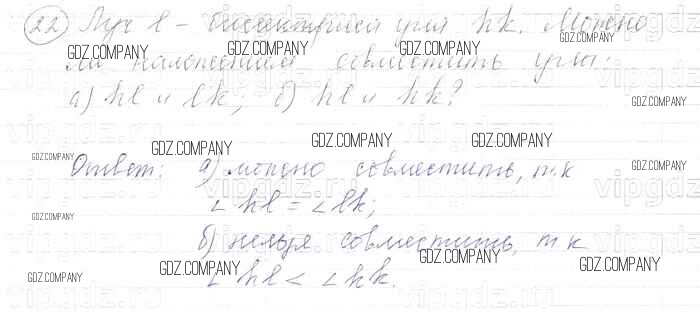 22 Луч l - биссектриса угла hk. Можно
GDZ.COMPANY GDZ.COMPANY GDZ.COMPANY GDZ.COMPANY
ли наложением совместить углы:
а) hl и lk, б) hl и hk?
GDZ.COMPANY
GDZ.COMPANY GDZ.COMPANY GDZ.COMPANY
GDZ.COMPANY GDZ.COMPANY
Ответ: а) можно совместить, т.к
∠hl = ∠lk;
GDZ.COMPANY
б) нельзя совместить, т к
GDZ.COMPANY GDZ.COMPANY GDZ.COMPANY GDZ.COMPANY
∠hl < ∠hk.